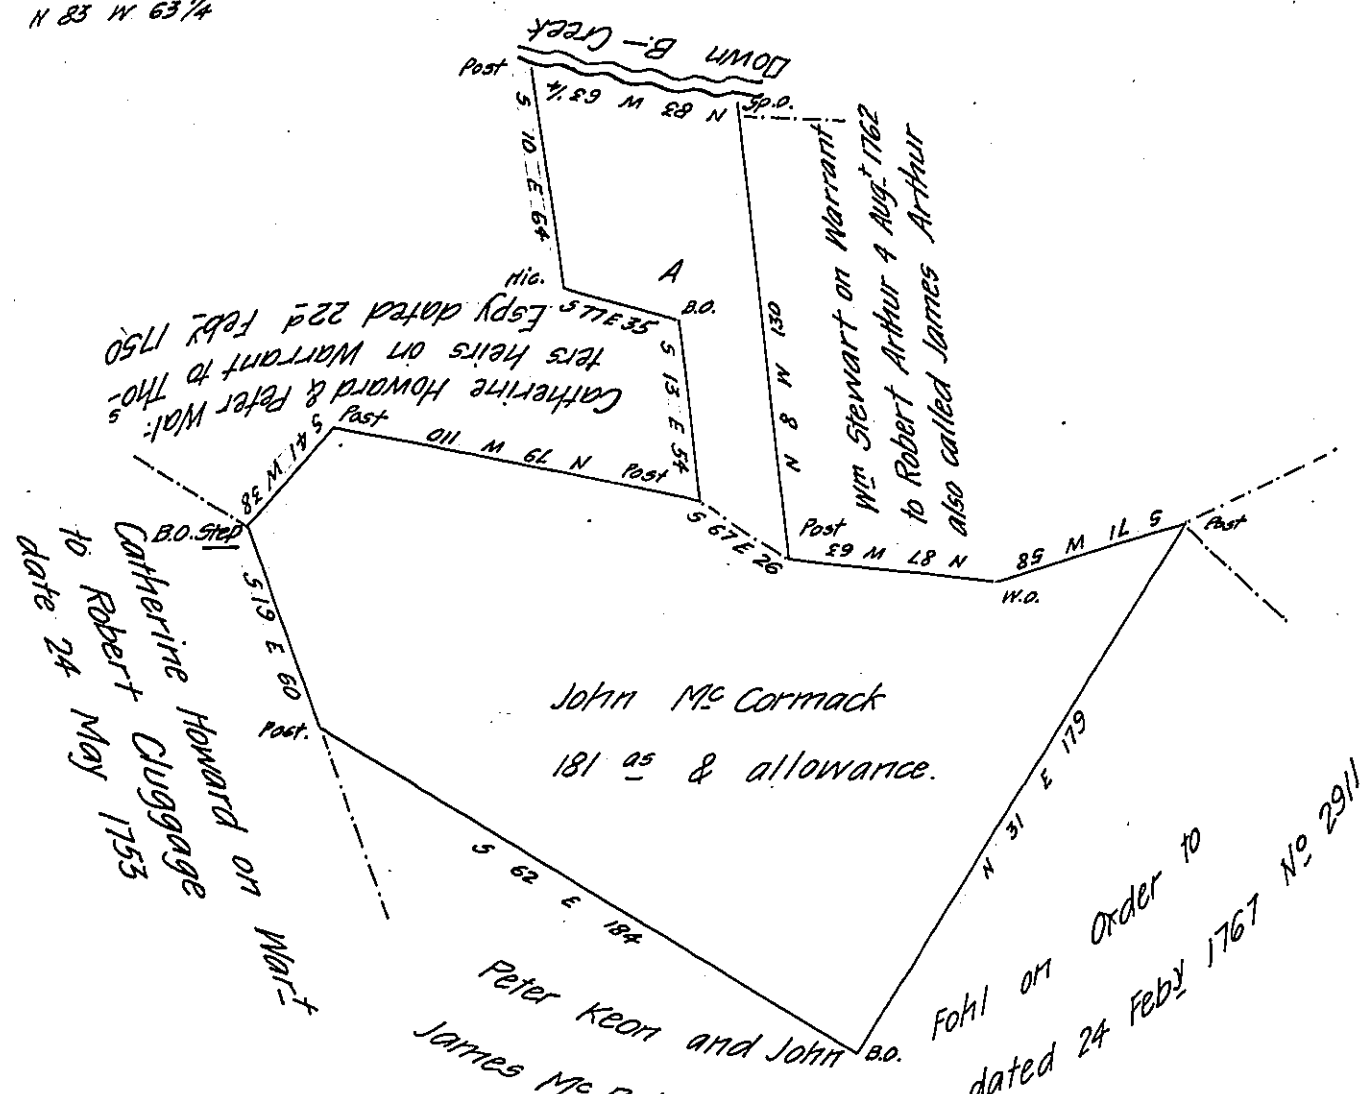 N 83 W 63 1/4
Down B.- Creek
Post
N 83 W 63 1/4
Sp.O.
S 10 E 64
Hic.
A
S 77 E 35
B.O.
S 13 E 54
N 8 W 130
Wm Stewart on Warrant
to Robert Arthur 4 Aug.t 1762
also called James Arthur
Catherine Howard & Peter Wal:
ters heirs on Warrant to Thos
Espy dated 22d Feby 1750
S 41 W 38
Post
N 79 W 110
Post
S 67 E 26
Post
N 87 W 63
W.O.
S 71 W 58
Post
B.O. Step
S 19 E 60
Post.
Catherine Howard on Wart
to Robert Cluggage
date 24 May 1753
John Mc Cormack
181 as & allowance.
N 31 E 179
S 62 E 184
B.O.
Peter Keon and John Fohl on Order to
James Mc dated 24 Feby 1767 No 2911